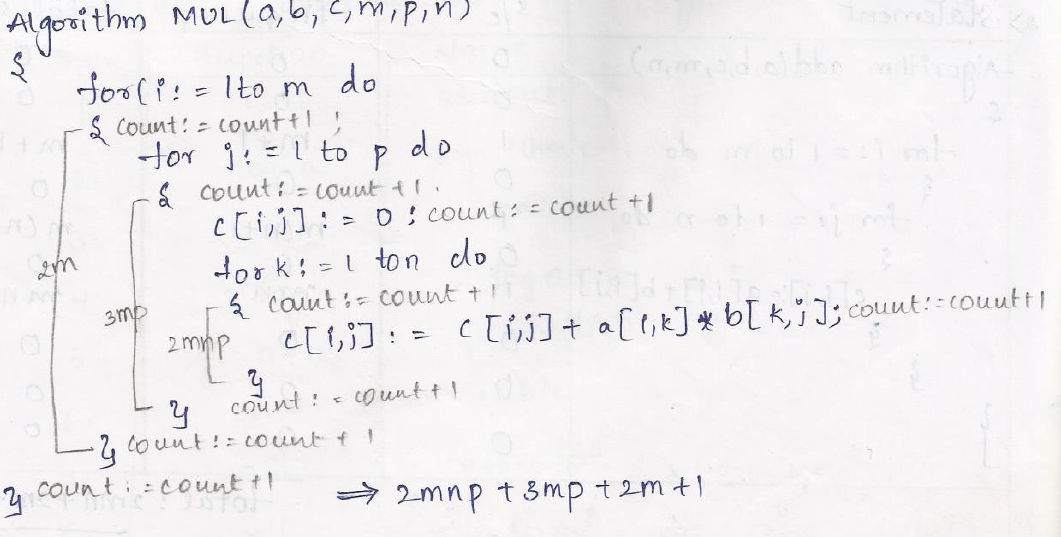 Algorithm MUL(a,b,c,m,p,n)
{
for(i:=1to m do
{ count:=count+1;
for j:=1 to p do
{ count:=count+1.
c[i,j]:=0; count:=count+1
2m
for k:=1 ton do
3mp
{ count:=count+1
2mnp c[i,j]:= c[i,j]+a[i,k]*b[k,j]; count:=count+1
}
} count:=count+1
} count:=count+1
} count:=count+1 ⇒ 2mnp+3mp+2m+1